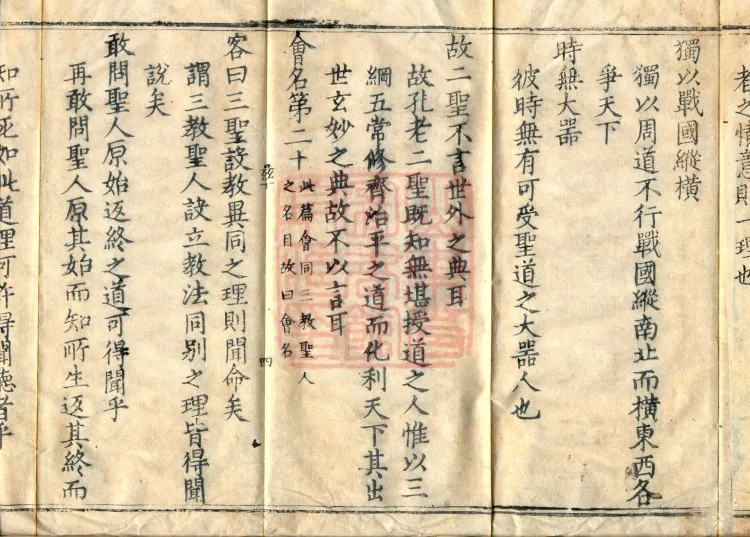 者之情意則一理也
獨以戰國縱橫
獨以周道不行戰國縱南北而橫東西各
爭天下
時無大器
彼時無有可受聖道之大器人也
故二聖不言世外之典耳
故孔老二聖既知無堪授道之人惟以三
綱五常修齊治平之道而化利天下其出
世玄妙之典故不以言耳
會名第二十
此篇會同三教聖人
之名目故曰會名
四
客曰三聖設教異同之理則聞命矣
謂三教聖人設立教法同別之理皆得聞
說矣
敢問聖人原始返終之道可得聞乎
再敢問聖人原其始而知所生返其終而
知所死如此道理可許得聞聽者乎